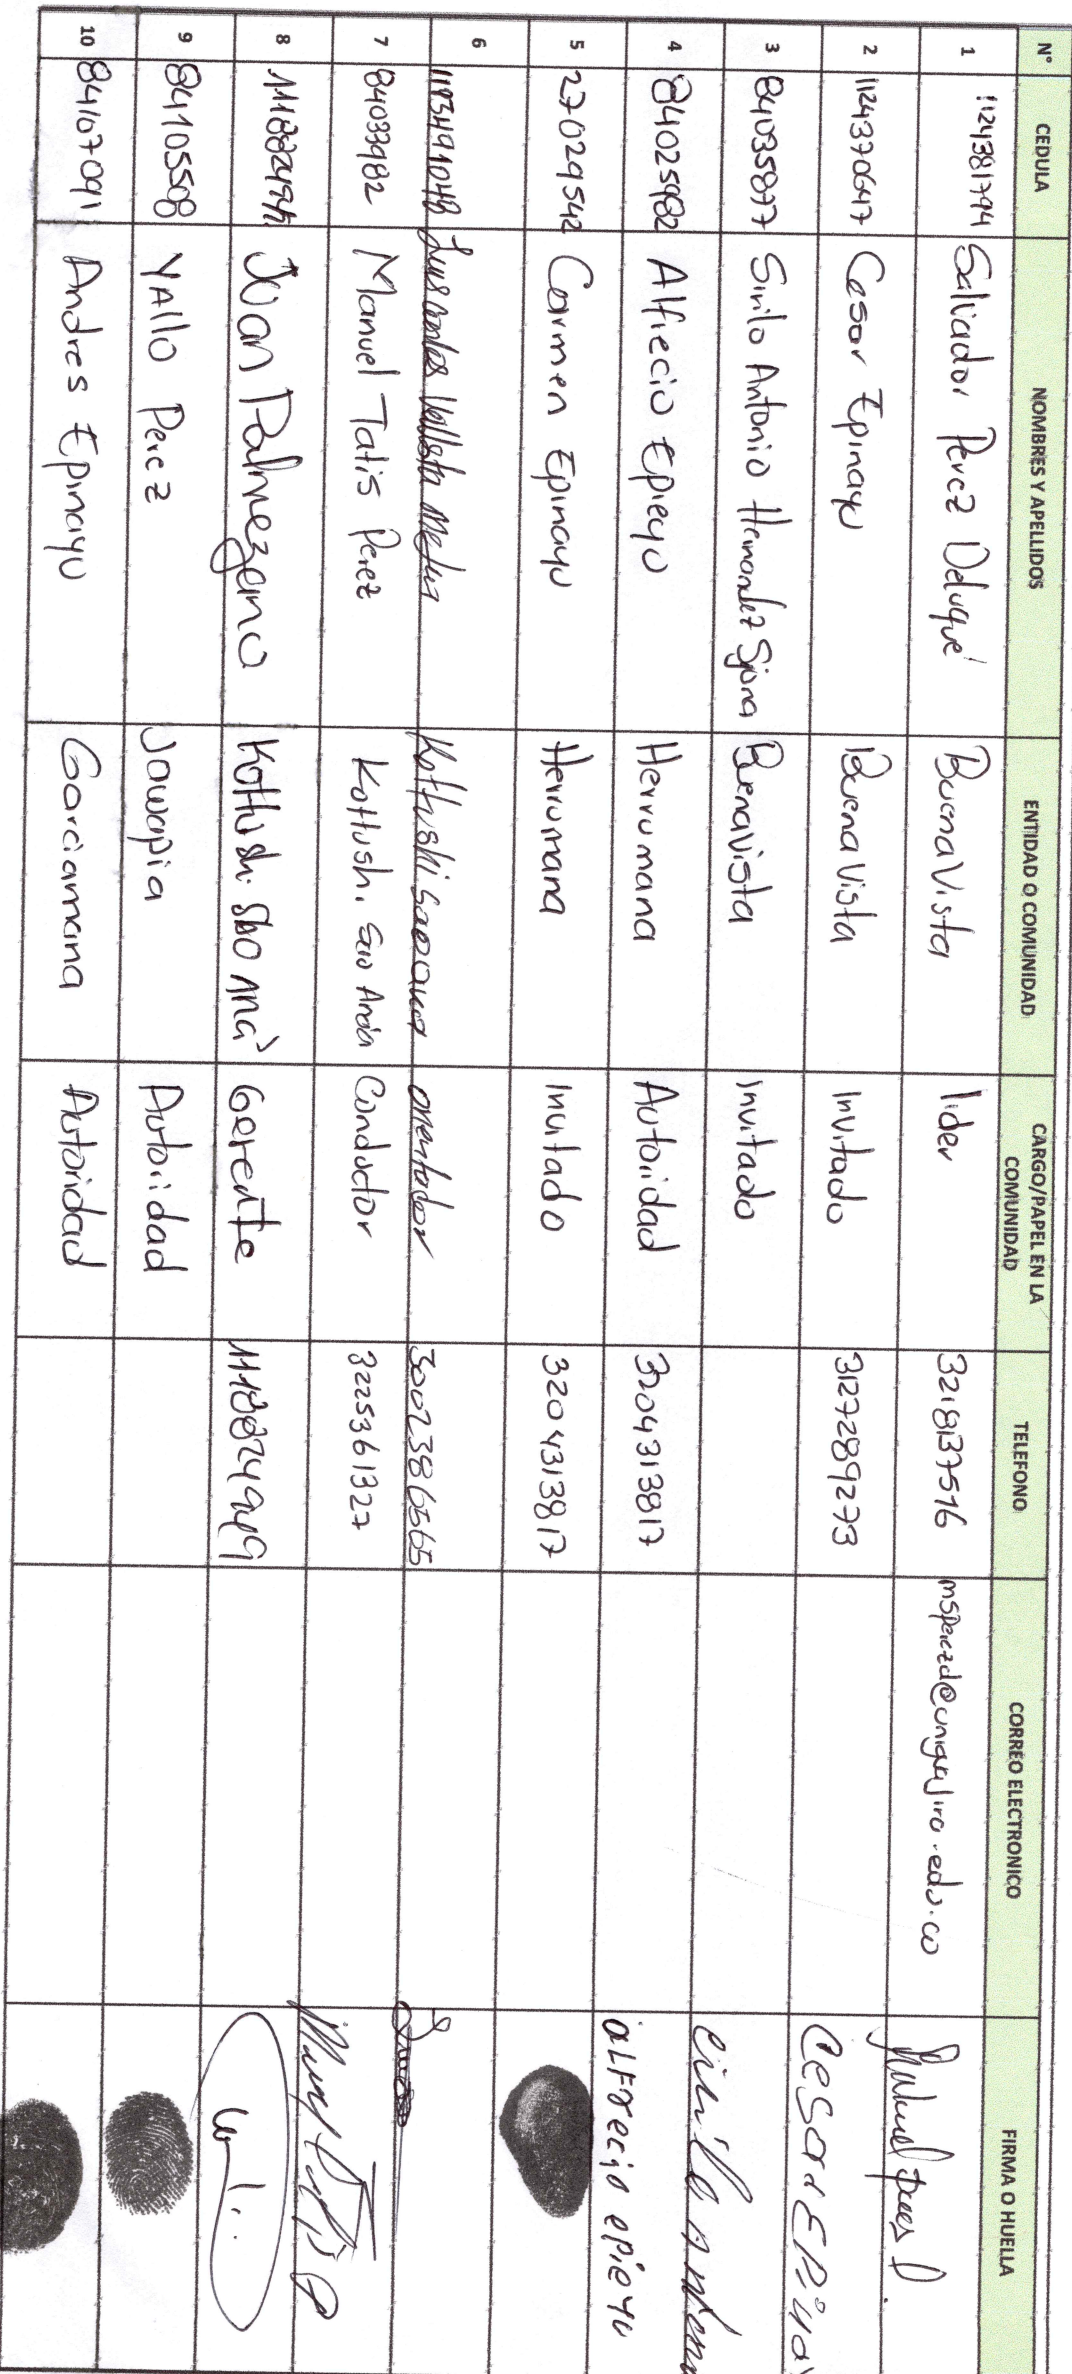 N° CEDULA NOMBRES Y APELLIDOS ENTIDAD O COMUNIDAD CARGO/PAPEL EN LA COMUNIDAD TELEFONO CORREO ELECTRONICO FIRMA O HUELLA
1 1124381794 Salvador Perez Deluque Buena Vista lider 3218137516 msperezd@uniguajira.edu.co
2 1124370647 Cesar Epinayu Buena Vista Invitado 3127289273 Cesar Epinay
3 84035877 Sirilo Antonio Hernandez Sjona Buenavista Invitado Cirilo Antoni
4 84025982 Alfrecio Epieyu Herrumana Autoridad 3204313817 alfrecio epieyu
5 27029542 Carmen Epinayu Herrumana Invitado 3204313817
6 orientador 3002386565
7 84033982 Manuel Tatis Perez Kottush. Conductor 3225361327
8 Juan Palmezano Gerente 1118824949
9 84105508 YAllo Perez Jawapia Autoridad
10 84107091 Andres Epinayu Garciamana Autoridad